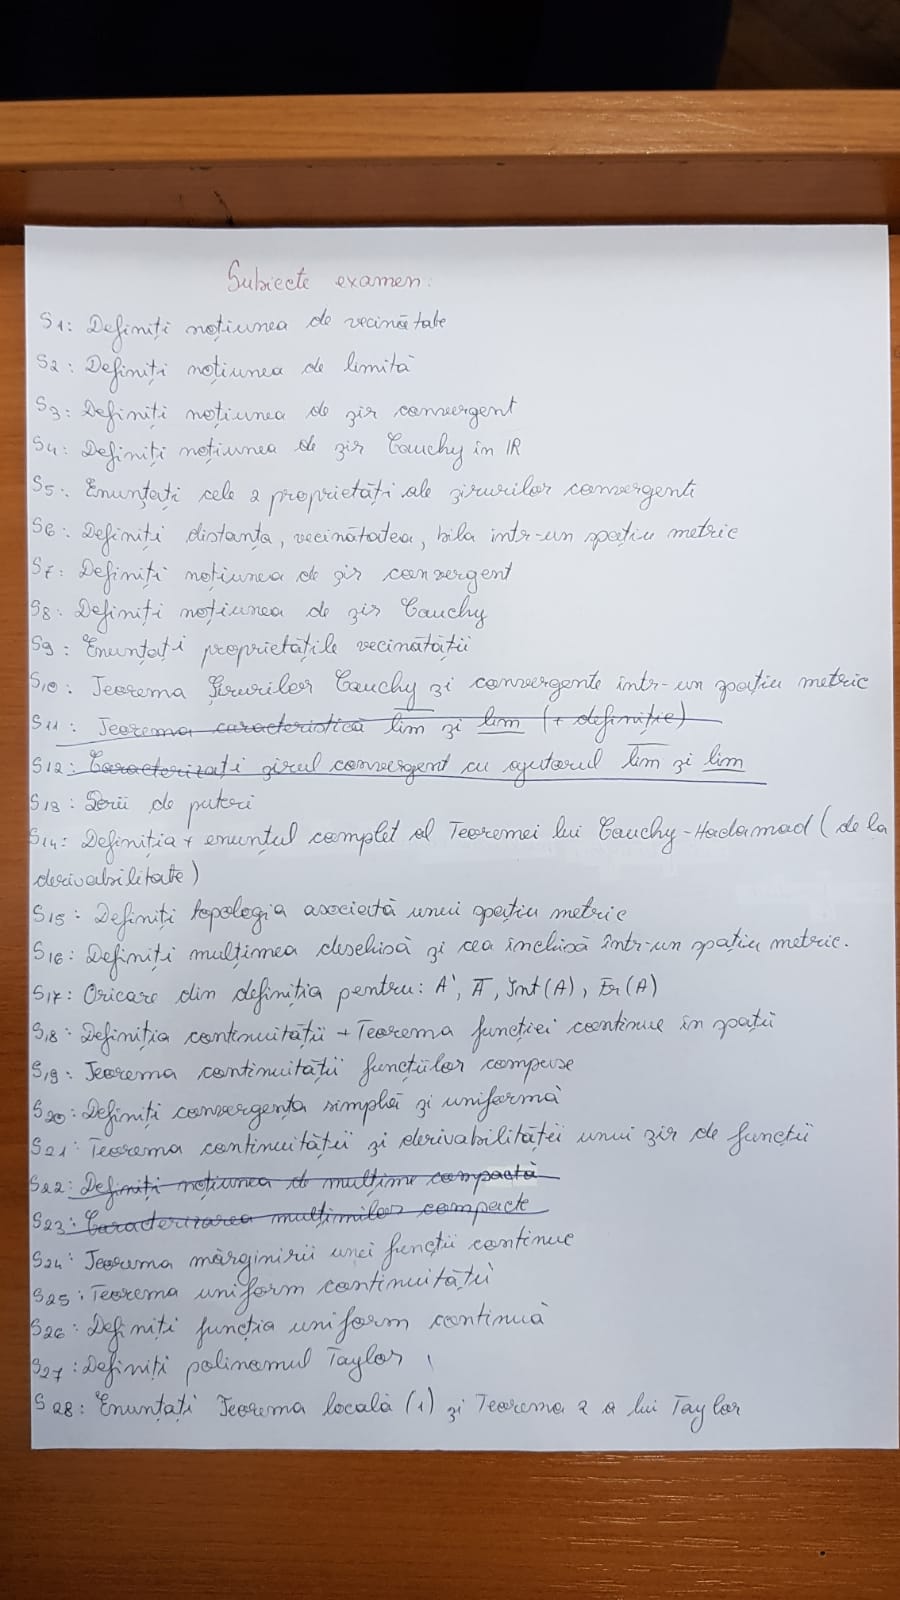 Subiecte examen:
S1: Definiți noțiunea de vecinătate
S2: Definiți noțiunea de limită
S3: Definiți noțiunea de șir convergent
S4: Definiți noțiunea de șir Cauchy în R
S5: Enunțați cele 2 proprietăți ale șirurilor convergente
S6: Definiți distanța, vecinătatea, bila într-un spațiu metric
S7: Definiți noțiunea de șir convergent
S8: Definiți noțiunea de șir Cauchy
S9: Enunțați proprietățile vecinătății
S10: Teorema șirurilor Cauchy și convergente într-un spațiu metric
S11: Teorema caracteristică lim și lim (+ definiție)
S12: Caracterizați șirul convergent cu ajutorul lim și lim
S13: Serii de puteri
S14: Definiția + enunțul complet al Teoremei lui Cauchy-Hadamad (de la
derivabilitate)
S15: Definiți topologia asociată unui spațiu metric
S16: Definiți mulțimea deschisă și cea închisă într-un spațiu metric.
S17: Oricare din definiția pentru: A', A̅, Int(A), Fr(A)
S18: Definiția continuității + Teorema funcției continue în spații
S19: Teorema continuității funcțiilor compuse
S20: Definiți convergența simplă și uniformă
S21: Teorema continuității și derivabilității unui șir de funcții
S22: Definiți noțiunea de mulțime compactă
S23: Caracterizarea mulțimilor compacte
S24: Teorema mărginirii unei funcții continue
S25: Teorema uniform continuității
S26: Definiți funcția uniform continuă
S27: Definiți polinomul Taylor
S28: Enunțați Teorema locală (1) și Teorema 2 a lui Taylor